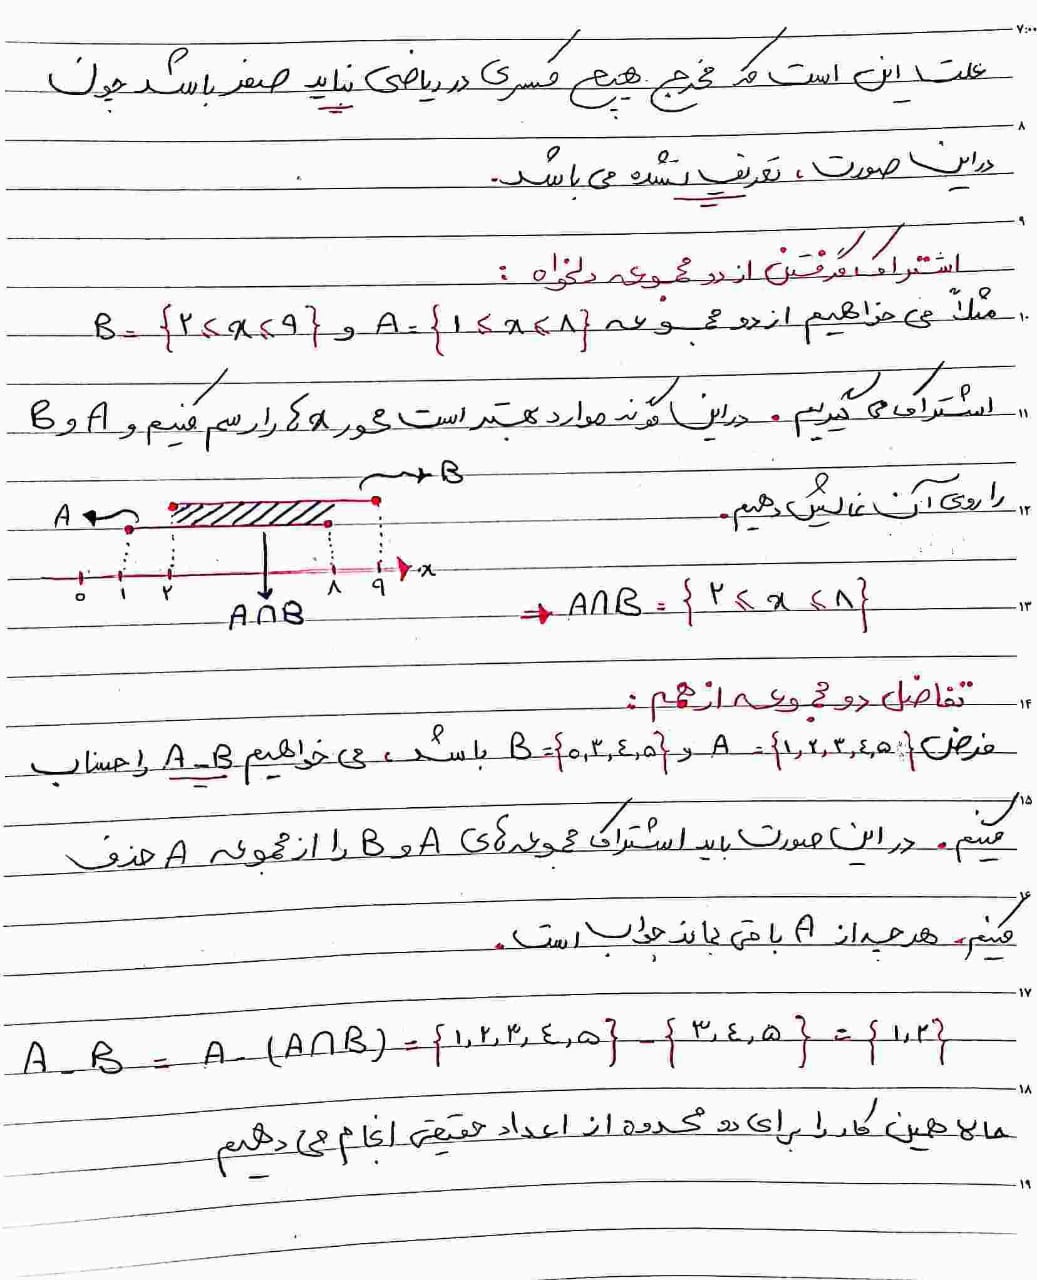 ۷:۰۰
علت این است که مخرج هیچ کسری در ریاضی نباید صفر باشد چون
۸
در این صورت، تعریف نشده می باشد.
۹
اشتراک گرفتن از دو مجموعه دلخواه :
۱۰ مثلاً می خواهیم از دو مجموعه A = {۱ ≤ x ≤ ۸} و B = {۲ ≤ x ≤ ۹}
۱۱ اشتراک می گیریم. در این گونه موارد بهتر است محور x ها را رسم کنیم و A و B
۱۲ را روی آن نمایش دهیم.
A B
۰ ۱ ۲ ۸ ۹ x
A∩B
۱۳ → A∩B = {۲ ≤ x ≤ ۸}
۱۴ تفاضل دو مجموعه از هم :
فرض A = {۱,۲,۳,٤,۵} و B = {۰,۳,٤,۵} باشد، می خواهیم A-B را حساب
۱۵
کنیم. در این صورت باید اشتراک مجموعه های A و B را از مجموعه A حذف
۱۶
کنیم. هر چه از A باقی بماند جواب است.
۱۷
A - B = A - (A∩B) = {۱,۲,۳,٤,۵} - {۳,٤,۵} = {۱,۲}
۱۸
حالا همین کار را برای دو محدوده از اعداد حقیقی انجام می دهیم
۱۹